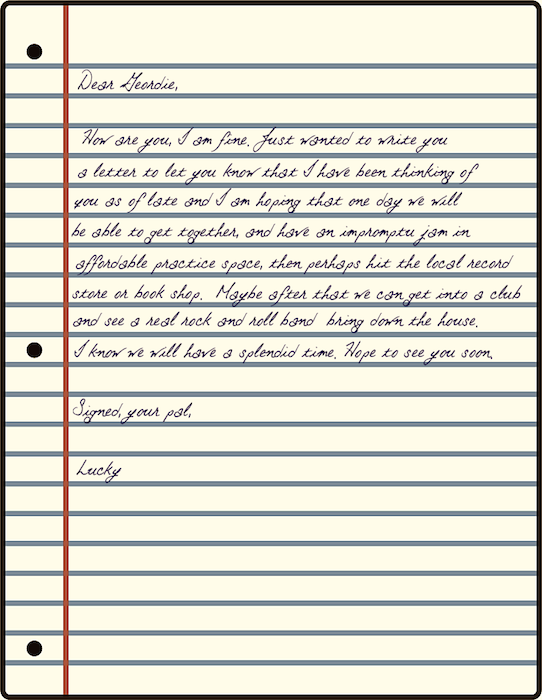 Dear Geordie,
How are you, I am fine. Just wanted to write you
a letter to let you know that I have been thinking of
you as of late and I am hoping that one day we will
be able to get together, and have an impromptu jam in
affordable practice space, then perhaps hit the local record
store or book shop. Maybe after that we can get into a club
and see a real rock and roll band bring down the house.
I know we will have a splendid time. Hope to see you soon.
Signed, your pal,
Lucky